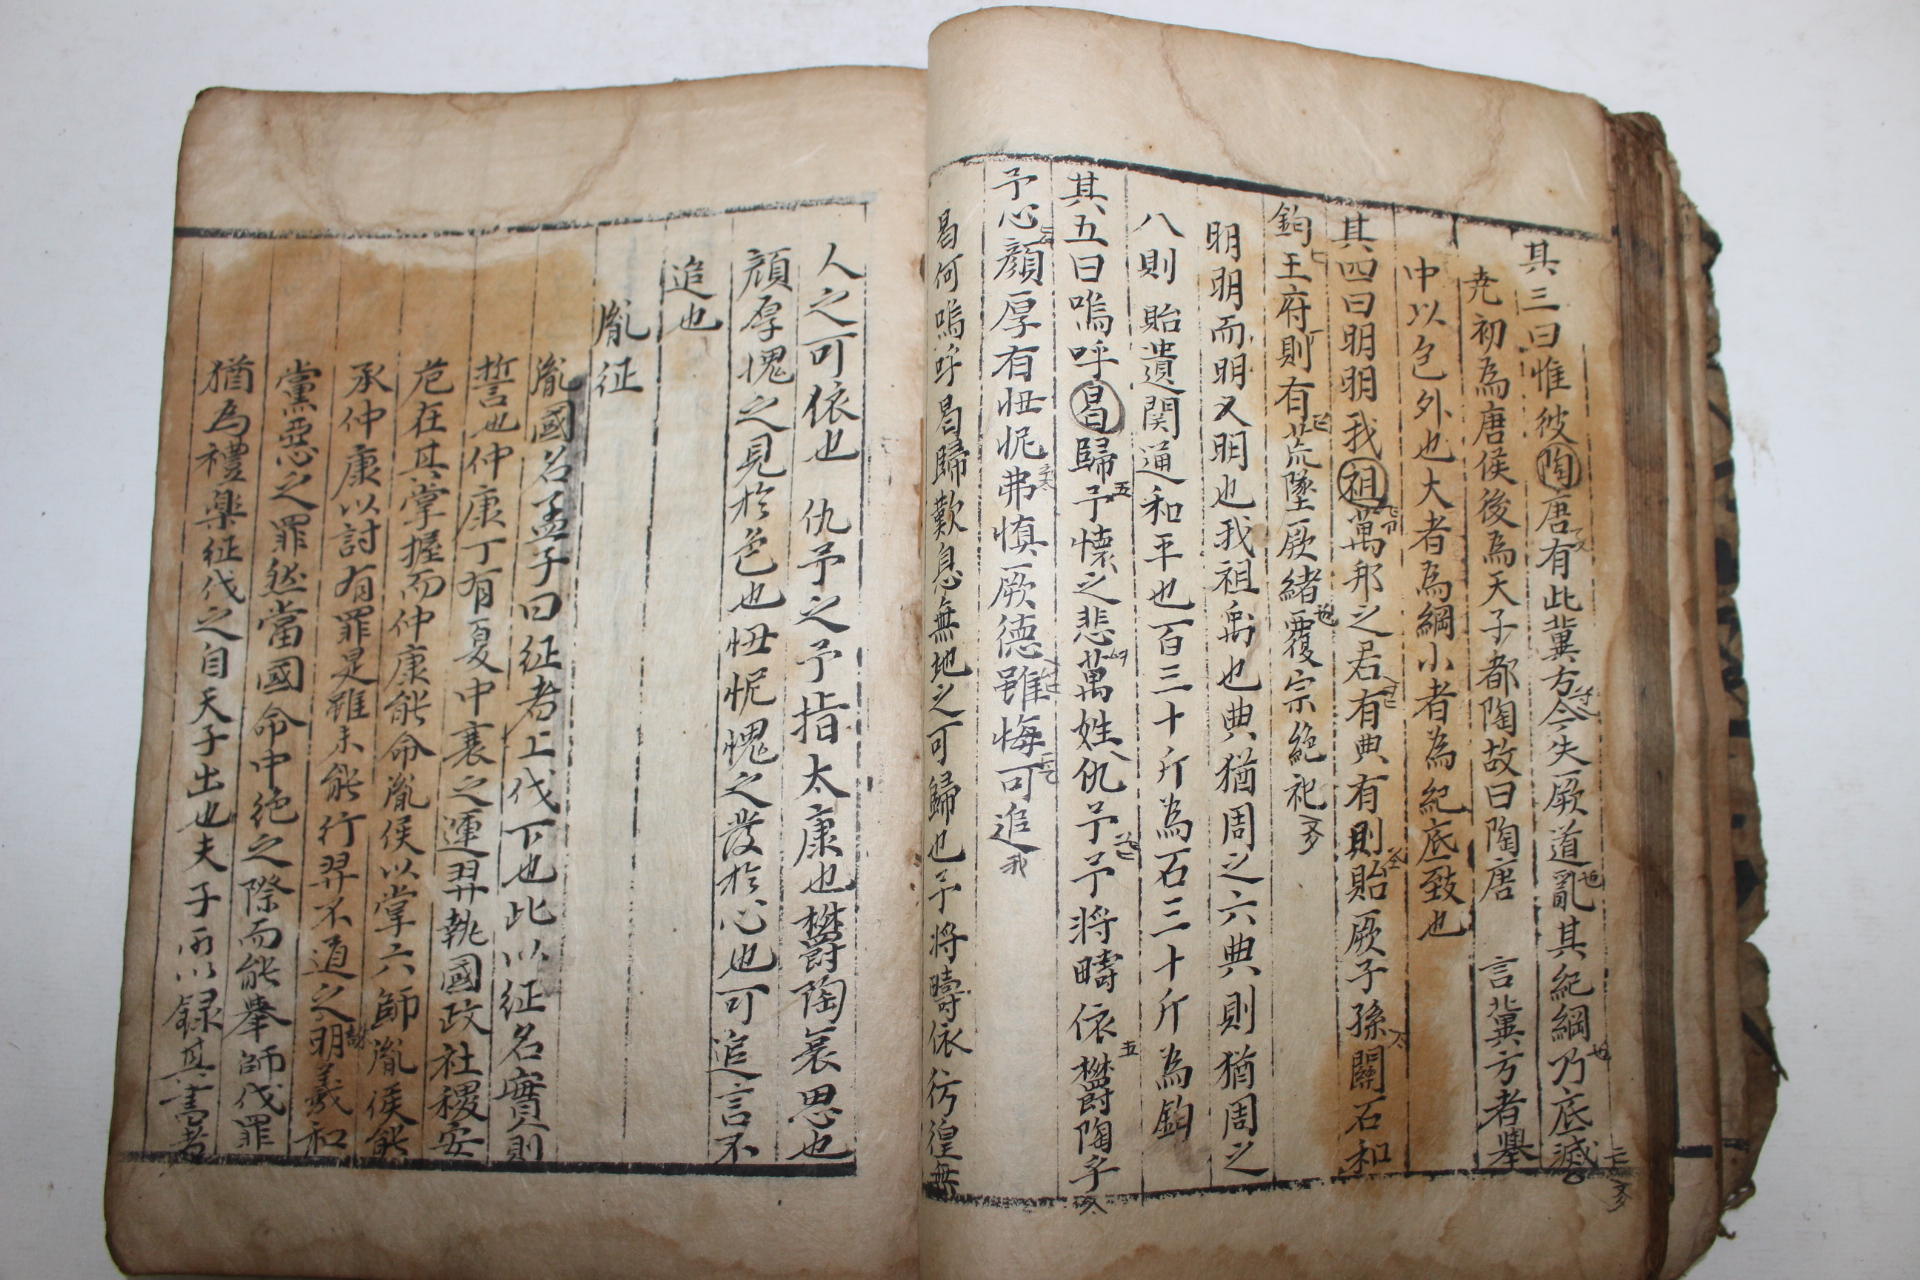 其三曰惟彼陶唐有此冀方今失厥道亂其紀綱乃底滅
堯初為唐侯後為天子都陶故曰陶唐 言冀方者擧
中以包外也大者為綱小者為紀底致也
其四曰明明我祖萬邦之君有典有則貽厥子孫關石和
鈞王府則有荒墜厥緖覆宗絶祀
明明而明又明也我祖禹也典猶周之六典則猶周之
八則 貽遺関通和平也百三十斤為石三十斤為鈞
其五曰嗚呼曷歸予懷之悲萬姓仇予予将疇依欝陶乎
予心顏厚有忸怩弗慎厥德雖悔可追
曷何嗚呼曷歸歎息無地之可歸也予将疇依彷徨無
人之可依也 仇予之予指太康也欝陶哀思也
顔厚愧之見於色也忸怩愧之發於心也可追言不
追也
胤征
胤國名孟子曰征者上伐下也此以征名實則
誓也仲康丁有夏中衰之運羿執國政社稷安
危在其掌握而仲康能命胤侯以掌六師胤侯能
承仲康以討有罪是雖未能行羿不道之明羲和
黨惡之罪然當國命中绝之際而能擧師伐罪
猶為禮樂征伐之自天子出也夫子所以録其書者